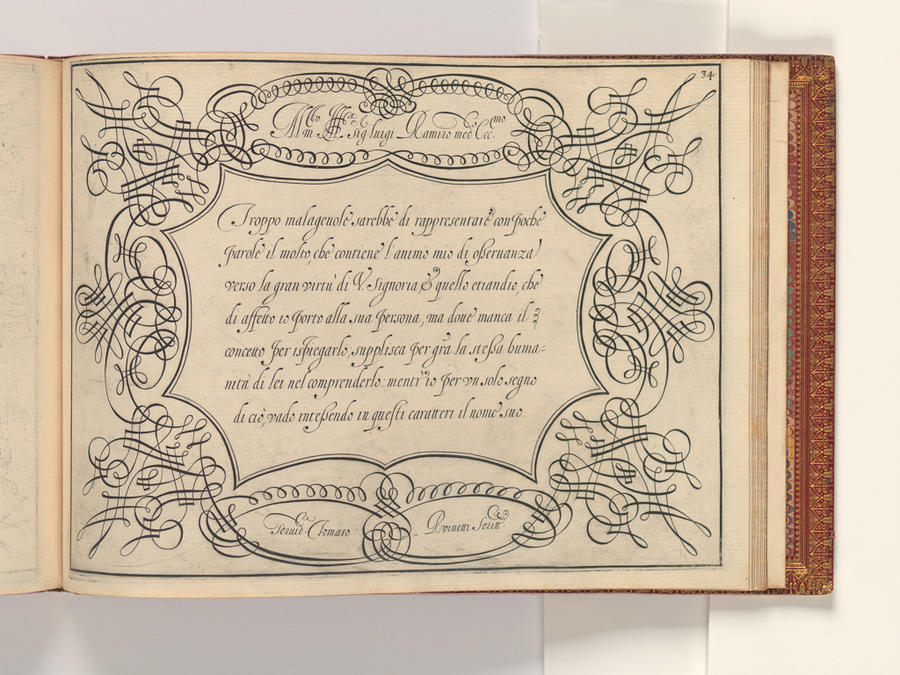 34
Sig. luigi Ramiro med. Ecc.mo
Troppo malageuole sarebbe di rappresentare con poche
parole il molto, che contiene l'animo mio di osseruanza
verso la gran virtù di V. Signoria, & quello etiandio, che
di affetto io porto alla sua persona, ma doue manca il
concetto per ispiegarlo, supplisca per grã la stessa huma-
nità di lei nel comprenderlo. mentr'io per vn solo segno
di ciò, vado intessendo in questi caratteri il nome suo.
Tomaso
Ruinetti Scritt.